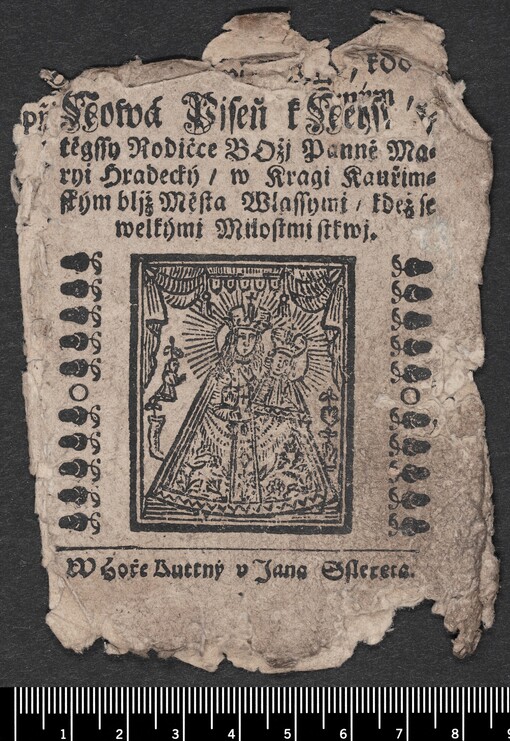 kdo
Nowá Pjseň k Neys
těgssy Rodičce BOžj Panně Ma-
ryi Hradecký / w Kragi Kauřim-
ským bljž Města Wlassymi / kdež se
welkými Milostmi stkwj.
W Hoře Kuttný v Jana
1 2 3 4 5 6 7 8 9